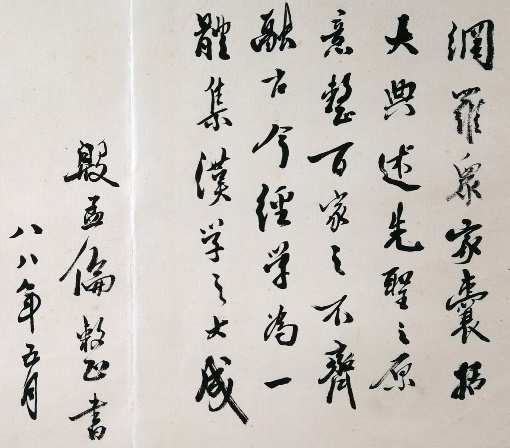 網羅衆家囊括
大典述先聖之原
意整百家之不齊
融古今經學為一
體集漢學之大成
殷孟倫書
八八年五月